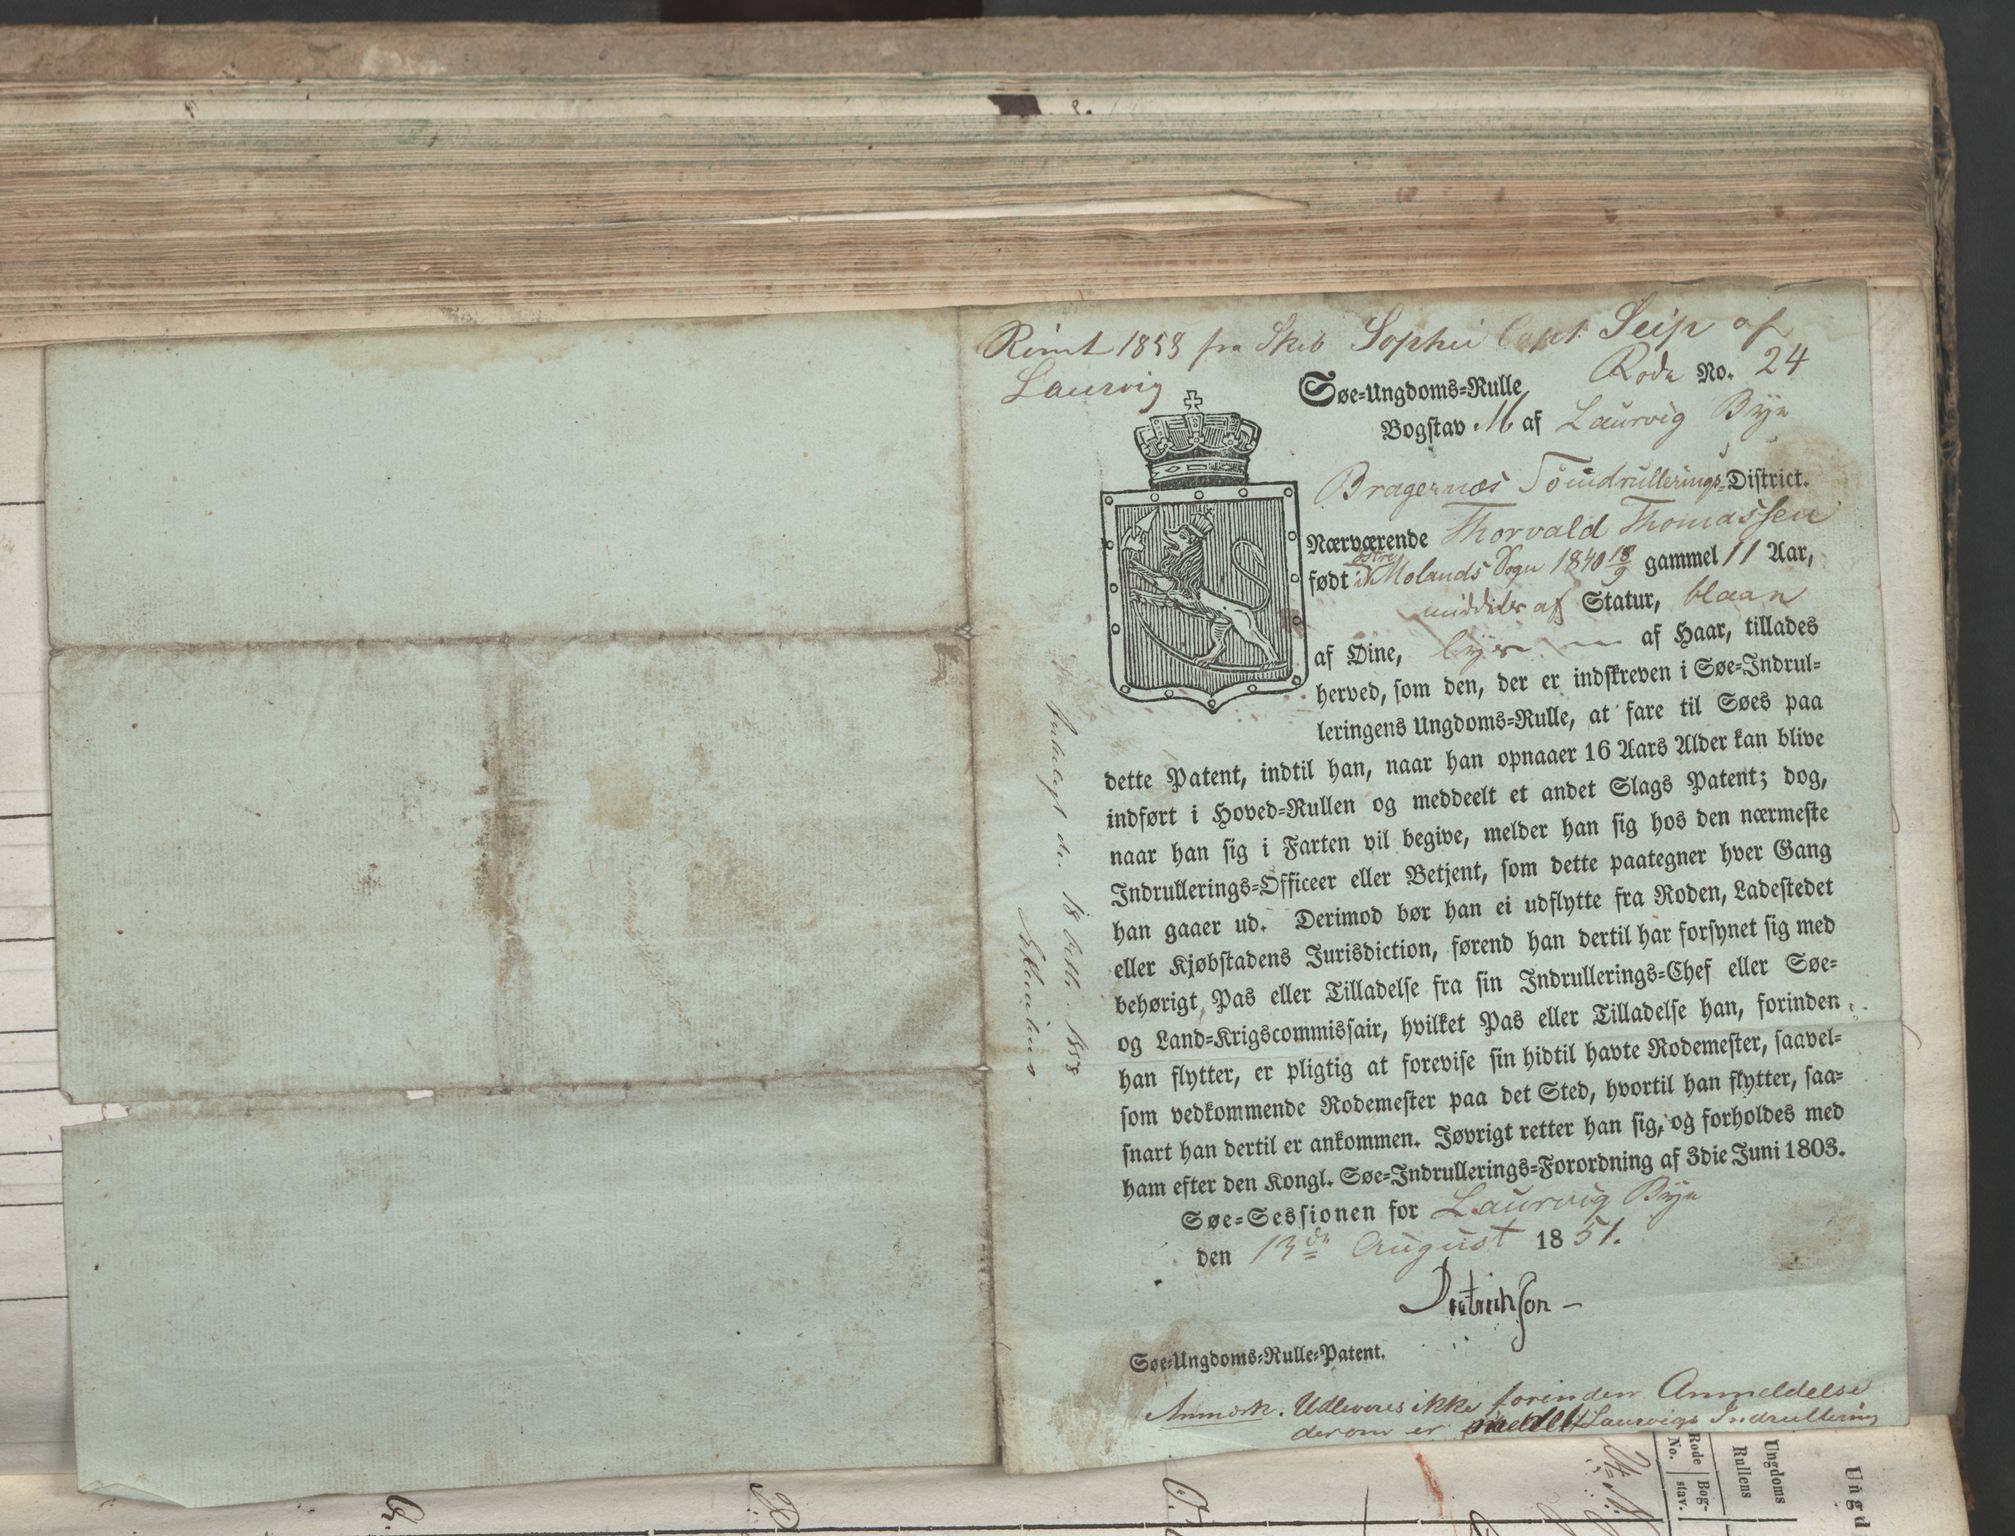 Rømt 1853 fra Skib Sophie Capt. Seip af
Laurvig
Rode No. 24
Søe-Ungdoms-Rulle
Bogstav M af Laurvig Bye
Bragernæs Söindrullerings-District.
Nærværende Thorvald Thomassen
født i østre Molands Sogn 1840 18/9 gammel 11 Aar,
middels af Statur, blaae
af Øine, lyse af Haar, tillades
herved, som den, der er indskreven i Søe-Indrul-
leringens Ungdoms-Rulle, at fare til Søes paa
dette Patent, indtil han, naar han opnaaer 16 Aars Alder kan blive
indført i Hoved-Rullen og meddeelt et andet Slags Patent; dog,
naar han sig i Farten vil begive, melder han sig hos den nærmeste
Indrullerings-Officeer eller Betjent, som dette paategner hver Gang
han gaaer ud. Derimod bør han ei udflytte fra Roden, Ladestedet
eller Kjøbstadens Jurisdiction, førend han dertil har forsynet sig med
behørigt Pas eller Tilladelse fra sin Indrullerings-Chef eller Søe-
og Land-Krigscommissair, hvilket Pas eller Tilladelse han, forinden
han flytter, er pligtig at forevise sin hidtil havte Rodemester, saavel-
som vedkommende Rodemester paa det Sted, hvortil han flytter, saa-
snart han dertil er ankommen. Jøvrigt retter han sig, og forholdes med
ham efter den Kongl. Søe-Indrullerings-Forordning af 3die Juni 1803.
Søe-Sessionen for Laurvig Bye
den 13de August 1851.
Dietrichson
Søe-Ungdoms-Rulle-Patent.
Anmærk. Udleveres ikke forinden Anmeldelse
derom er meldt Laurvigs Indrullering
18 1853
Ungdoms
Rullens
Rode No.
Bog-
stav.
Ungd